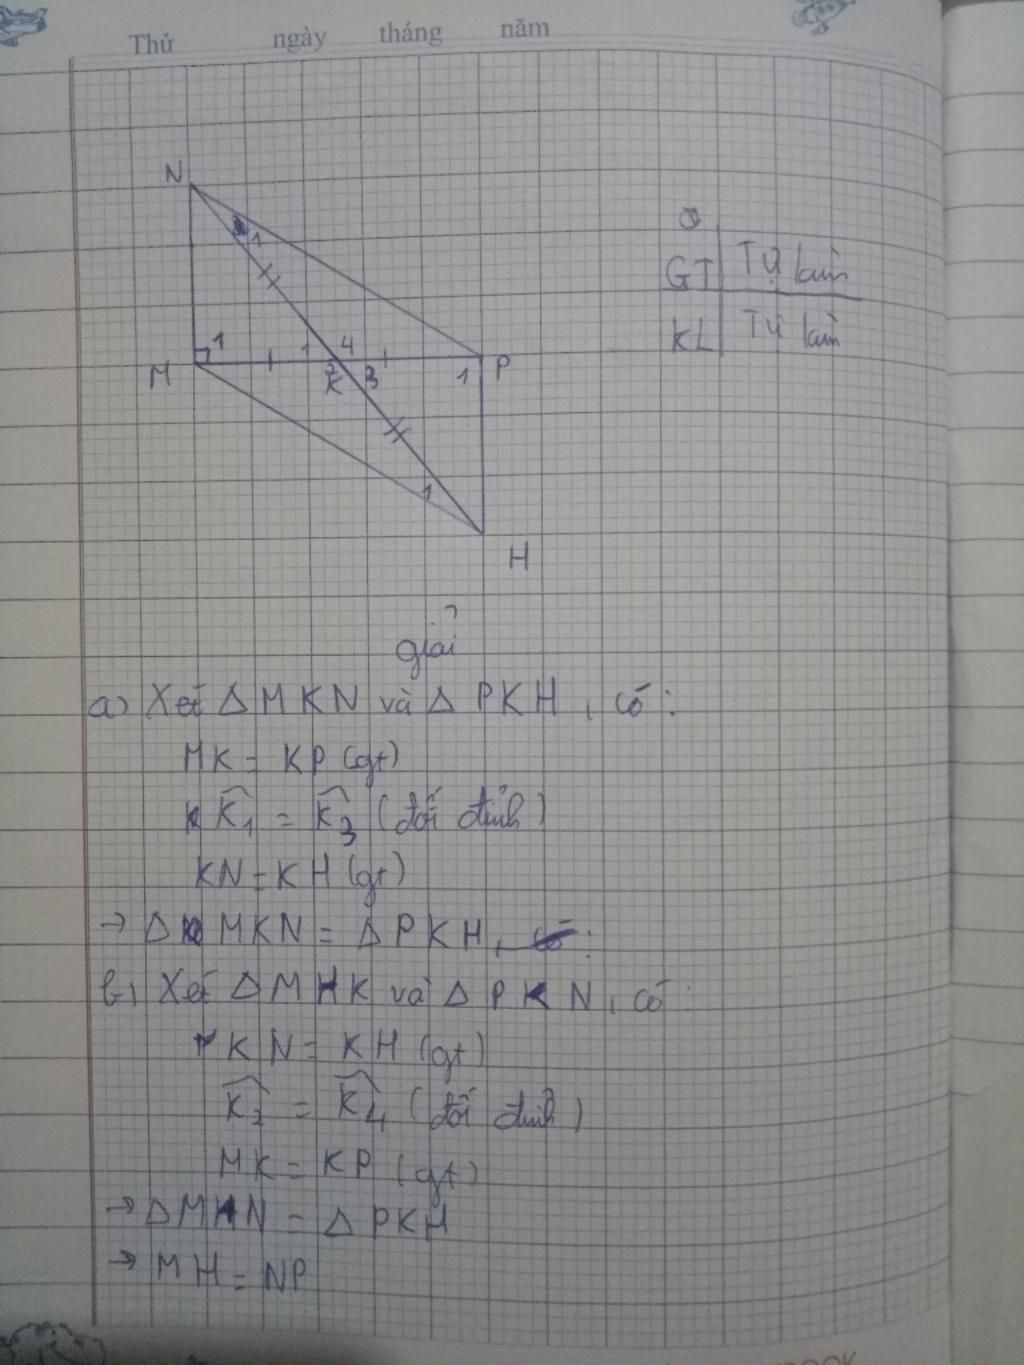 Thứ ngày tháng năm
N
1
1
1 4
M
2
K 3
1 P
1
H
GT Tự làm
KL Tự làm
giải
a) Xét Δ MKN và Δ PKH, có:
MK = KP (gt)
K̂1 = K̂3 (đối đỉnh)
KN = KH (gt)
→ Δ MKN = Δ PKH,
b) Xét Δ MHK và Δ PKN, có:
KN = KH (gt)
K̂2 = K̂4 (đối đỉnh)
MK = KP (gt)
→ Δ MHN = Δ PKH
→ MH = NP